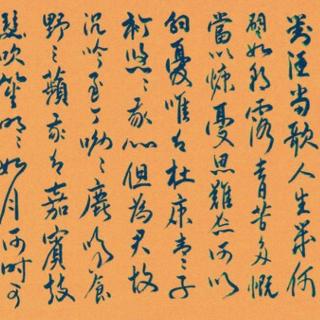 對酒当歌人生幾何
譬如朝露去日苦多慨
當以慷憂思難忘何以
解憂唯有杜康青々子
衿悠々我心但為君故
沉吟至今呦々鹿鳴食
野之蘋我有嘉賓鼓
瑟吹笙明々如月何時可